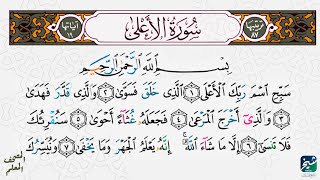 ترتيبها ٨٧
سُورَةُ الأَعْلَىٰ
آياتها ١٩
بِسْمِ ٱللَّهِ ٱلرَّحْمَٰنِ ٱلرَّحِيمِ
سَبِّحِ ٱسْمَ رَبِّكَ ٱلْأَعْلَى ١ ٱلَّذِى خَلَقَ فَسَوَّىٰ ٢ وَٱلَّذِى قَدَّرَ فَهَدَىٰ
٣ وَٱلَّذِىٓ أَخْرَجَ ٱلْمَرْعَىٰ ٤ فَجَعَلَهُۥ غُثَآءً أَحْوَىٰ ٥ سَنُقْرِئُكَ
فَلَا تَنسَىٰٓ ٦ إِلَّا مَا شَآءَ ٱللَّهُ ۚ إِنَّهُۥ يَعْلَمُ ٱلْجَهْرَ وَمَا يَخْفَىٰ ٧ وَنُيَسِّرُكَ
المصحف المعلم